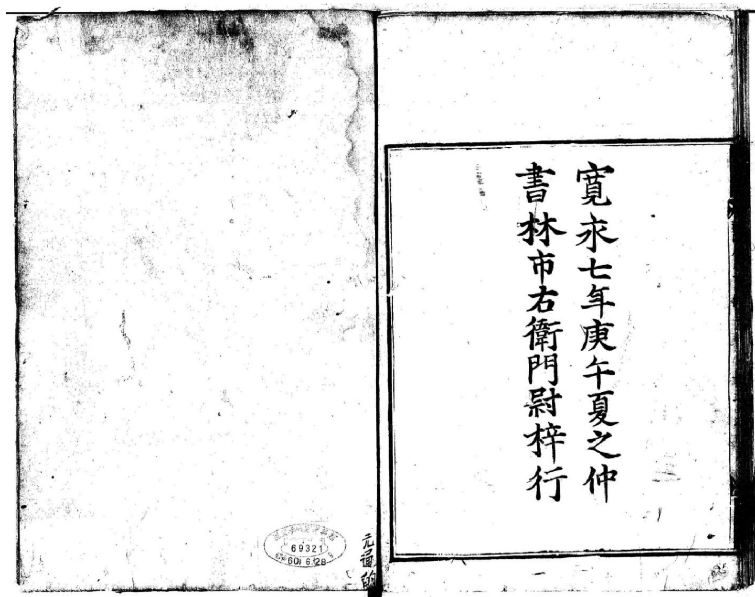 寛永七年庚午夏之仲
書林市右衛門尉梓行
元通的
69321
60. 6. 28